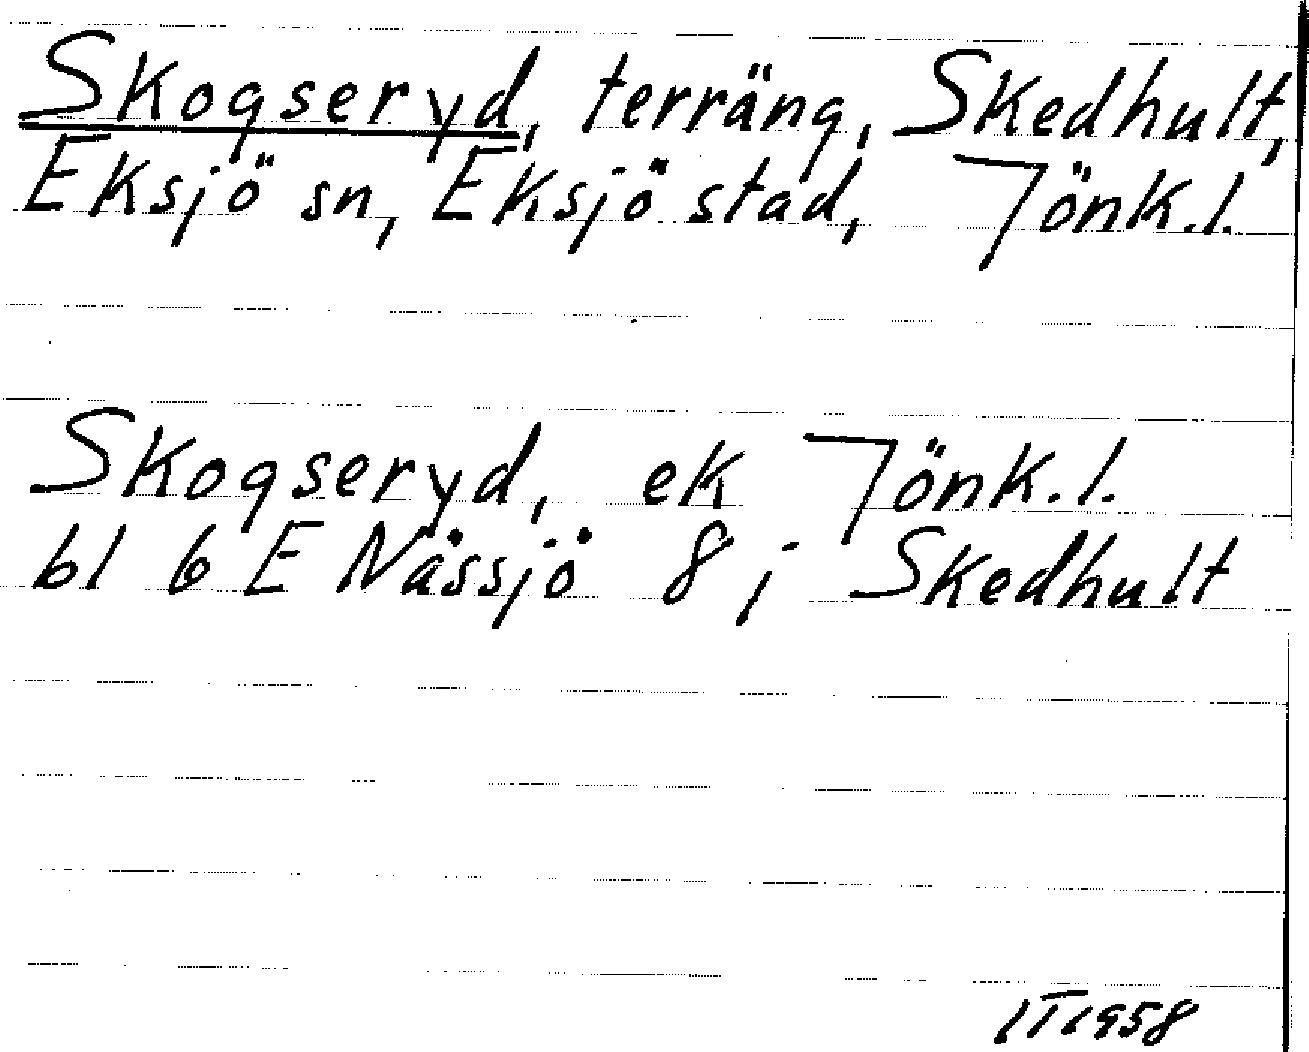 Skogseryd, terräng, Skedhult,
Eksjö sn, Eksjö stad, Jönk.l.
Skogseryd, ek Jönk.l.
bl 6 E Nässjö 8 j Skedhult
IT 1958